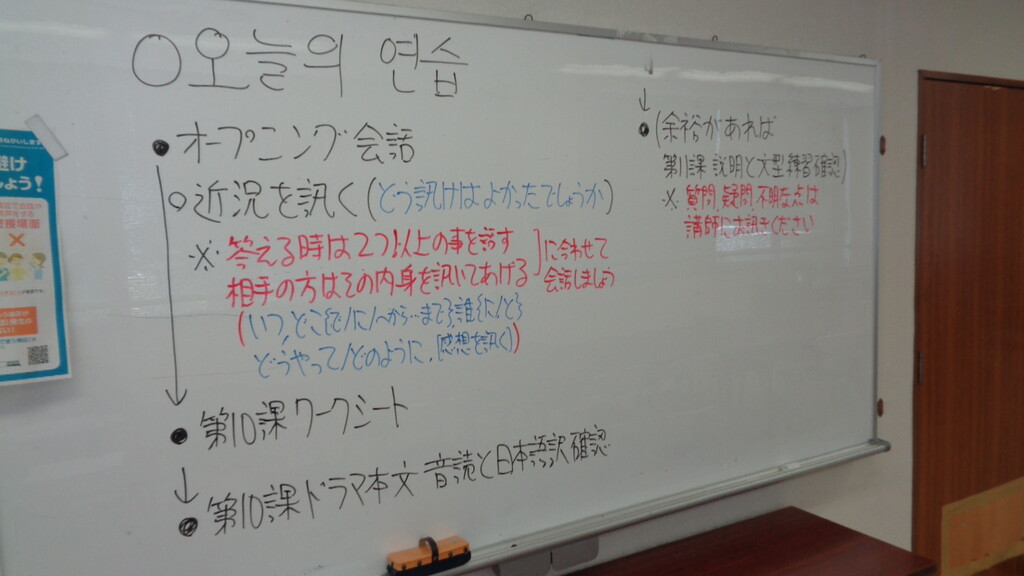 ○오늘의 연습
● オープニング会話
○近況を訊く(どう訊けばよかったでしょうか)
※ 答える時は2つ以上の事を話す
相手の方はその内身を訊いてあげる
に合わせて
会話しましょう
(いつ,どこで/に/へから…まで
どうやって/どのように,感想を訊く)
● 第10課 ワークシート
↓
● 第10課ドラマ本文 音読と日本語訳確認
↓
● (余裕があれば
第11課 説明と文型練習確認)
※ 質問,疑問,不明な点は
講師にお訊きください
避け
みよう!